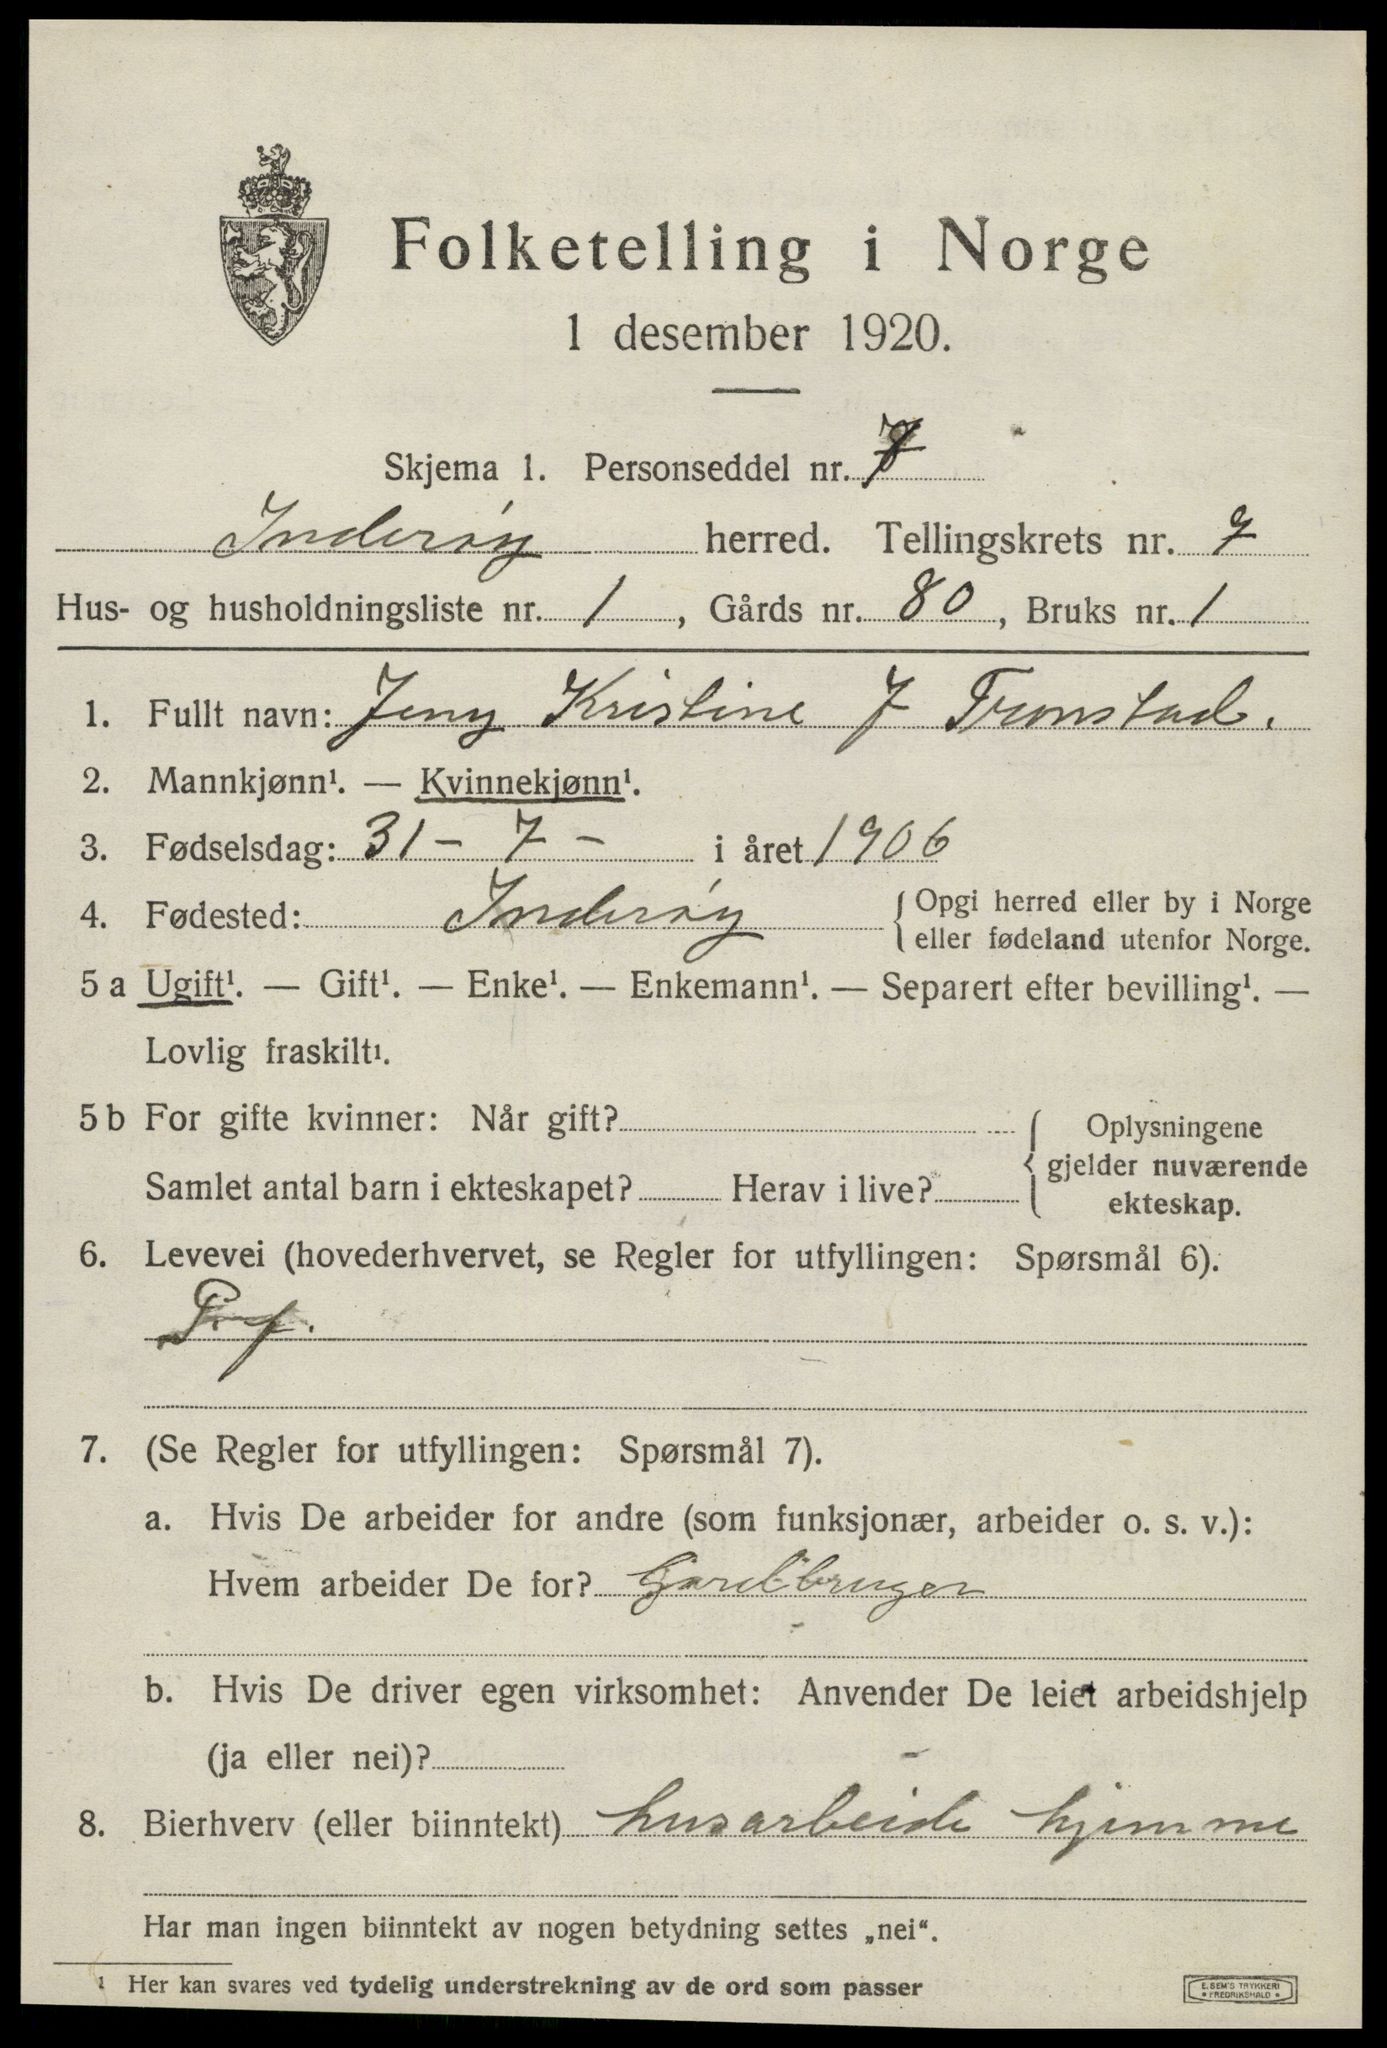 Folketelling i Norge
1 desember 1920.
Skjema 1. Personseddel nr. 7
Inderøy herred. Tellingskrets nr. 7
Hus- og husholdningsliste nr. 1, Gårds nr. 80, Bruks nr. 1
1. Fullt navn: Jeny Kristine J Tronstad.
2. Mannkjønn¹. — Kvinnekjønn¹.
3. Fødselsdag: 31 - 7 - i året 1906
4. Fødested: Inderøy { Opgi herred eller by i Norge
eller fødeland utenfor Norge.
5 a Ugift¹. — Gift¹. — Enke¹. — Enkemann¹. — Separert efter bevilling¹. —
Lovlig fraskilt¹.
5 b For gifte kvinner: Når gift?
Samlet antal barn i ekteskapet? Herav i live?
{ Oplysningene
gjelder nuværende
ekteskap.
6. Levevei (hovederhvervet, se Regler for utfyllingen: Spørsmål 6).
7. (Se Regler for utfyllingen: Spørsmål 7).
a. Hvis De arbeider for andre (som funksjonær, arbeider o. s. v.):
Hvem arbeider De for? Gardbruger
b. Hvis De driver egen virksomhet: Anvender De leiet arbeidshjelp
(ja eller nei)?
8. Bierhverv (eller biinntekt) husarbeide hjemme
Har man ingen biinntekt av nogen betydning settes „nei“.
¹ Her kan svares ved tydelig understrekning av de ord som passer
E. SEM'S TRYKKERI
• FREDRIKSHALD •